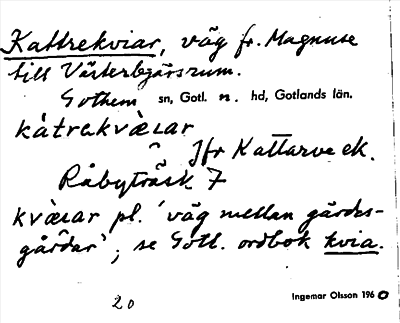 Kattrekviar, väg fr. Magnuse
till Västerbjärsrum.
Gothem sn, Gotl. n. hd, Gotlands län.
kátrakvὲɪar
Jfr Kattarve ek.
Råbyträsk 7
kvὲɪar pl. 'väg mellan gärdes-
gårdar'; se Gotl. ordbok kvia.
20
Ingemar Olsson 1960